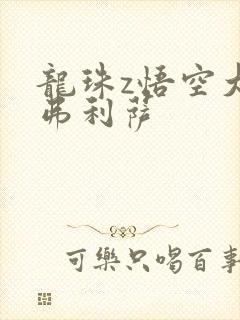 龍珠z悟空大
弗利薩
可樂只喝百事